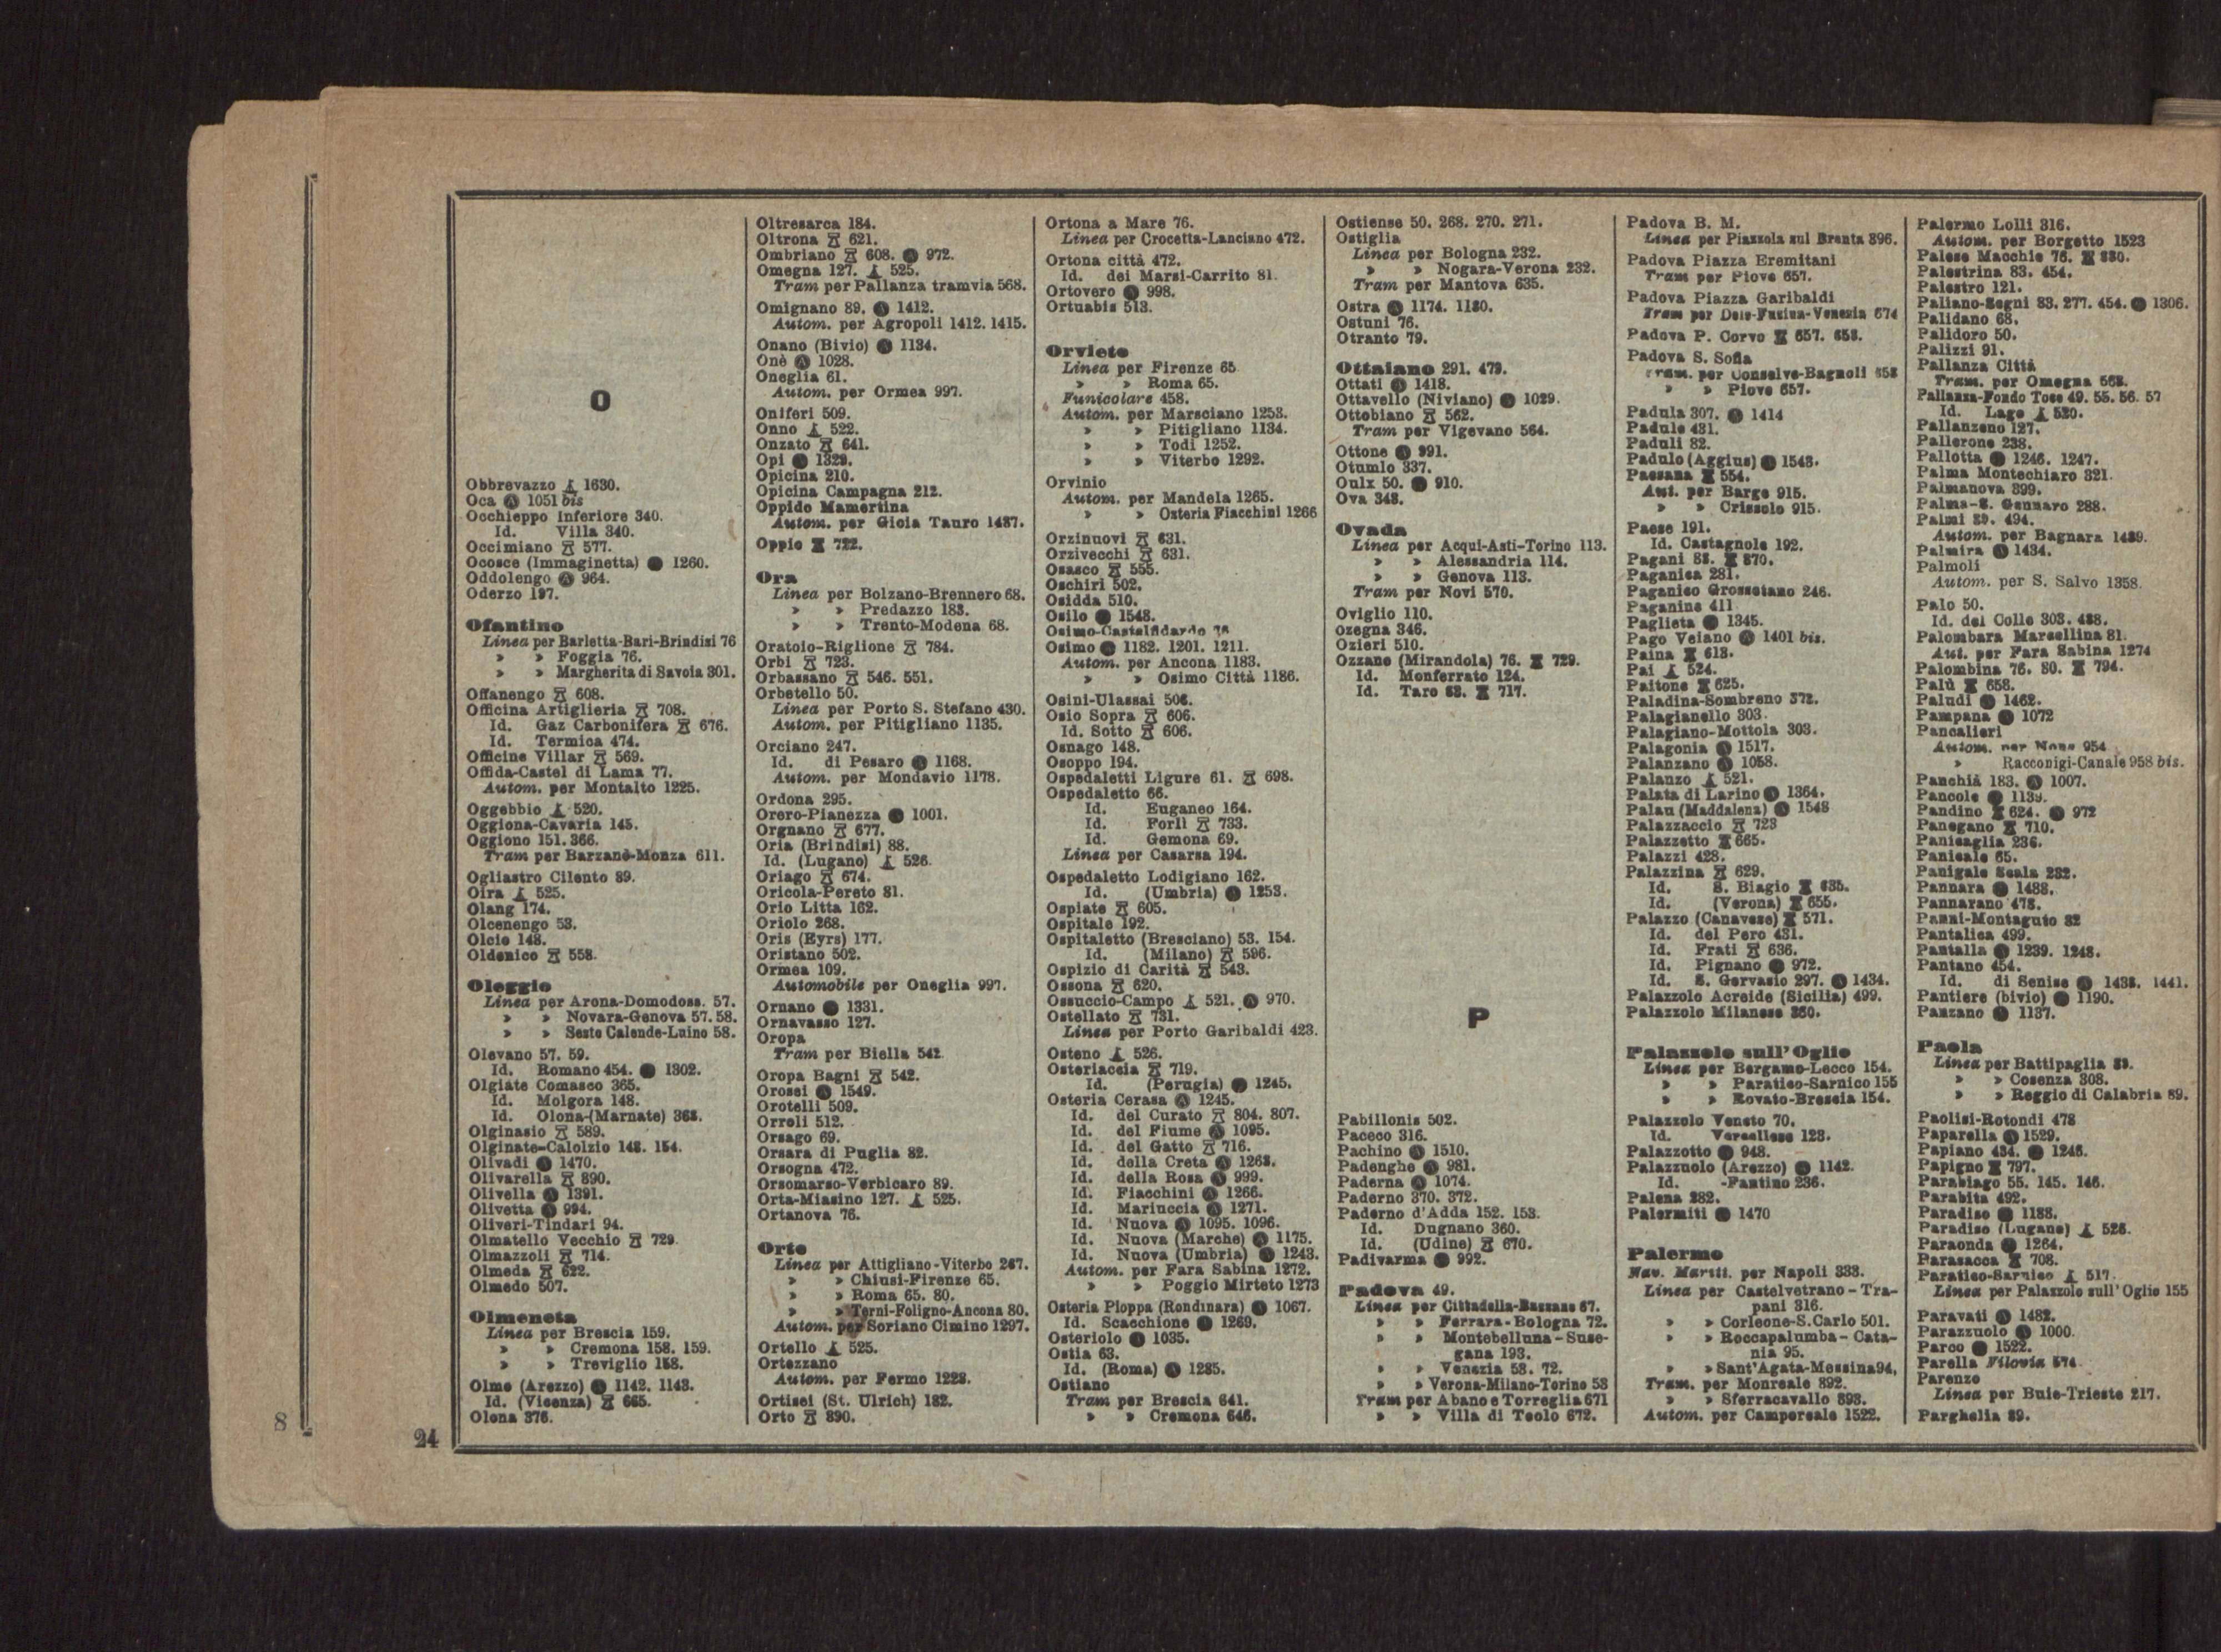 O
Obbrevazzo 1630.
Oca 1051 bis
Occhieppo Inferiore 340.
Id. Villa 340.
Occimiano 577.
Ocosce (Immaginetta) 1260.
Oddolengo 964.
Oderzo 197.
Ofantino
Linea per Barletta-Bari-Brindisi 76
» » Foggia 76.
» » Margherita di Savoia 301.
Offanengo 608.
Officina Artiglieria 708.
Id. Gaz Carbonifera 676.
Id. Termica 474.
Officine Villar 569.
Offida-Castel di Lama 77.
Autom. per Montalto 1225.
Oggebbio 520.
Oggiona-Cavaria 145.
Oggiono 151. 366.
Tram per Barzanò-Monza 611.
Ogliastro Cilento 89.
Oira 525.
Olang 174.
Olcenengo 53.
Olcio 148.
Oldenico 558.
Oleggio
Linea per Arona-Domodoss. 57.
» » Novara-Genova 57. 58.
» » Sesto Calende-Luino 58.
Olevano 57. 59.
Id. Romano 454. 1302.
Olgiate Comasco 365.
Id. Molgora 148.
Id. Olona-(Marnate) 368.
Olginasio 589.
Olginate-Calolzio 148. 154.
Olivadi 1470.
Olivarella 890.
Olivella 1391.
Olivetta 994.
Oliveri-Tindari 94.
Olmatello Vecchio 729.
Olmazzoli 714.
Olmeda 622.
Olmedo 507.
Olmeneta
Linea per Brescia 159.
» » Cremona 158. 159.
» » Treviglio 158.
Olmo (Arezzo) 1142. 1143.
Id. (Vicenza) 665.
Olona 376.
Oltresarca 184.
Oltrona 621.
Ombriano 608. 972.
Omegna 127. 525.
Tram per Pallanza tramvia 568.
Omignano 89. 1412.
Autom. per Agropoli 1412. 1415.
Onano (Bivio) 1134.
Onè 1028.
Oneglia 61.
Autom. per Ormea 997.
Oniferi 509.
Onno 522.
Onzato 641.
Opi 1329.
Opicina 210.
Opicina Campagna 212.
Oppido Mamertina
Autom. per Gioia Tauro 1487.
Oppio 722.
Ora
Linea per Bolzano-Brennero 68.
» » Predazzo 183.
» » Trento-Modena 68.
Oratoio-Riglione 784.
Orbi 723.
Orbassano 546. 551.
Orbetello 50.
Linea per Porto S. Stefano 430.
Autom. per Pitigliano 1135.
Orciano 247.
Id. di Pesaro 1168.
Autom. per Mondavio 1178.
Ordona 295.
Orero-Pianezza 1001.
Orgnano 677.
Oria (Brindisi) 88.
Id. (Lugano) 526.
Oriago 674.
Oricola-Pereto 81.
Orio Litta 162.
Oriolo 268.
Oris (Eyrs) 177.
Oristano 502.
Ormea 109.
Automobile per Oneglia 997.
Ornano 1331.
Ornavasso 127.
Oropa
Tram per Biella 542.
Oropa Bagni 542.
Orosei 1549.
Orotelli 509.
Orroli 512.
Orsago 69.
Orsara di Puglia 82.
Orsogna 472.
Orsomarso-Verbicaro 89.
Orta-Miasino 127. 525.
Ortanova 76.
Orte
Linea per Attigliano-Viterbo 267.
» » Chiusi-Firenze 65.
» » Roma 65. 80.
» » Terni-Foligno-Ancona 80.
Autom. per Soriano Cimino 1297.
Ortello 525.
Ortezzano
Autom. per Fermo 1228.
Ortisei (St. Ulrich) 182.
Orto 890.
Ortona a Mare 76.
Linea per Crocetta-Lanciano 472.
Ortona città 472.
Id. dei Marsi-Carrito 81.
Ortovero 998.
Ortuabis 513.
Orvieto
Linea per Firenze 65
» » Roma 65.
Funicolare 458.
Autom. per Marsciano 1253.
» » Pitigliano 1134.
» » Todi 1252.
» » Viterbo 1292.
Orvinio
Autom. per Mandela 1265.
» » Osteria Fiacchini 1266
Orzinuovi 631.
Orzivecchi 631.
Osasco 555.
Oschiri 502.
Osidda 510.
Osilo 1548.
Osimo-Castelfidardo 76
Osimo 1182. 1201. 1211.
Autom. per Ancona 1183.
» » Osimo Città 1186.
Osini-Ulassai 506.
Osio Sopra 606.
Id. Sotto 606.
Osnago 148.
Osoppo 194.
Ospedaletti Ligure 61. 698.
Ospedaletto 66.
Id. Euganeo 164.
Id. Forlì 733.
Id. Gemona 69.
Linea per Casarsa 194.
Ospedaletto Lodigiano 162.
Id. (Umbria) 1253.
Ospiate 605.
Ospitale 192.
Ospitaletto (Bresciano) 53. 154.
Id. (Milano) 596.
Ospizio di Carità 543.
Ossona 620.
Ossuccio-Campo 521. 970.
Ostellato 731.
Linea per Porto Garibaldi 423.
Osteno 526.
Osteriaccia 719.
Id. (Perugia) 1245.
Osteria Cerasa 1245.
Id. del Curato 804. 807.
Id. del Fiume 1095.
Id. del Gatto 716.
Id. della Creta 1268.
Id. della Rosa 999.
Id. Fiacchini 1266.
Id. Mariuccia 1271.
Id. Nuova 1095. 1096.
Id. Nuova (Marche) 1175.
Id. Nuova (Umbria) 1243.
Autom. per Fara Sabina 1272.
» » Poggio Mirteto 1273
Osteria Pioppa (Rondinara) 1067.
Id. Scacchione 1269.
Osteriolo 1035.
Ostia 63.
Id. (Roma) 1285.
Ostiano
Tram per Brescia 641.
» » Cremona 646.
Ostiense 50. 268. 270. 271.
Ostiglia
Linea per Bologna 232.
» » Nogara-Verona 232.
Tram per Mantova 635.
Ostra 1174. 1180.
Ostuni 76.
Otranto 79.
Ottaiano 291. 479.
Ottati 1418.
Ottavello (Niviano) 1029.
Ottobiano 562.
Tram per Vigevano 564.
Ottone 991.
Otumlo 337.
Oulx 50. 910.
Ova 348.
Ovada
Linea per Acqui-Asti-Torino 113.
» » Alessandria 114.
» » Genova 113.
Tram per Novi 570.
Oviglio 110.
Ozegna 346.
Ozieri 510.
Ozzano (Mirandola) 76. 729.
Id. Monferrato 124.
Id. Taro 717.
P
Pabillonis 502.
Paceco 316.
Pachino 1510.
Padenghe 981.
Paderna 1074.
Paderno 370. 372.
Paderno d'Adda 152. 153.
Id. Dugnano 360.
Id. (Udine) 670.
Padivarma 992.
Padova 49.
Linea per Cittadella-Bassano 67.
» » Ferrara-Bologna 72.
» » Montebelluna-Suse-
gana 193.
» » Venezia 53. 72.
» » Verona-Milano-Torino 53
Tram per Abano e Torreglia 671
» » Villa di Teolo 672.
Padova B. M.
Linea per Piazzola sul Brenta 396.
Padova Piazza Eremitani
Tram per Piove 657.
Padova Piazza Garibaldi
Tram per Dolo-Fusina-Venezia 674
Padova P. Corvo 657. 658.
Padova S. Sofia
Tram. per Conselve-Bagnoli 658
» » Piove 657.
Padula 307. 1414
Padule 431.
Paduli 82.
Padulo (Aggius) 1543.
Paesana 554.
Aut. per Barge 915.
» » Crissolo 915.
Paese 191.
Id. Castagnole 192.
Pagani 83. 870.
Paganica 281.
Paganico Grossetano 246.
Paganino 411
Paglieta 1345.
Pago Veiano 1401 bis.
Paina 613.
Pai 524.
Paitone 625.
Paladina-Sombreno 372.
Palagianello 303.
Palagiano-Mottola 303.
Palagonia 1517.
Palanzano 1058.
Palanzo 521.
Palata di Larino 1364.
Palau (Maddalena) 1548
Palazzaccio 723
Palazzetto 665.
Palazzi 428.
Palazzina 629.
Id. S. Biagio 635.
Id. (Verona) 655.
Palazzo (Canavese) 571.
Id. del Pero 431.
Id. Frati 636.
Id. Pignano 972.
Id. S. Gervasio 297. 1434.
Palazzolo Acreide (Sicilia) 499.
Palazzolo Milanese 360.
Palazzolo sull'Oglio
Linea per Bergamo-Lecco 154.
» » Paratico-Sarnico 155
» » Rovato-Brescia 154.
Palazzolo Veneto 70.
Id. Vercellese 123.
Palazzotto 948.
Palazzuolo (Arezzo) 1142.
Id. -Fantino 236.
Palena 282.
Palermiti 1470
Palermo
Nav. Maritt. per Napoli 333.
Linea per Castelvetrano-Tra-
pani 316.
» » Corleone-S.Carlo 501.
» » Roccapalumba-Cata-
nia 95.
» » Sant'Agata-Messina 94,
Tram. per Monreale 892.
» » Sferracavallo 893.
Autom. per Camporeale 1522.
Palermo Lolli 316.
Autom. per Borgetto 1523
Palese Macchie 76. 830.
Palestrina 83. 454.
Palestro 121.
Paliano-Segni 83. 277. 454. 1306.
Palidano 68.
Palidoro 50.
Palizzi 91.
Pallanza Città
Tram. per Omegna 568.
Pallanza-Fondo Toce 49. 55. 56. 57
Id. Lago 520.
Pallanzeno 127.
Pallerone 238.
Pallotta 1246. 1247.
Palma Montechiaro 321.
Palmanova 399.
Palma-S. Gennaro 288.
Palmi 89. 494.
Autom. per Bagnara 1489.
Palmira 1434.
Palmoli
Autom. per S. Salvo 1358.
Palo 50.
Id. del Colle 303. 488.
Palombara Marcellina 81.
Aut. per Fara Sabina 1274
Palombina 76. 80. 794.
Palù 658.
Paludi 1462.
Pampana 1072
Pancalieri
Autom. per None 954
» Racconigi-Canale 958 bis.
Panchià 183. 1007.
Pancole 1139.
Pandino 624. 972
Panegano 710.
Panicaglia 236.
Panicale 65.
Panigale Scala 232.
Pannara 1488.
Pannarano 478.
Panni-Montaguto 82
Pantalica 499.
Pantalla 1239. 1248.
Pantano 454.
Id. di Senise 1438. 1441.
Pantiere (bivio) 1190.
Panzano 1137.
Paola
Linea per Battipaglia 89.
» » Cosenza 308.
» » Reggio di Calabria 89.
Paolisi-Rotondi 478
Paparella 1529.
Papiano 434. 1246.
Papigno 797.
Parabiago 55. 145. 146.
Parabita 492.
Paradiso 1188.
Paradiso (Lugano) 526.
Paraonda 1264.
Parasacco 708.
Paratico-Sarnico 517.
Linea per Palazzolo sull'Oglio 155
Paravati 1482.
Parazzuolo 1000.
Parco 1522.
Parella Filovia 574
Parenzo
Linea per Buie-Trieste 217.
Parghelia 89.
8
24